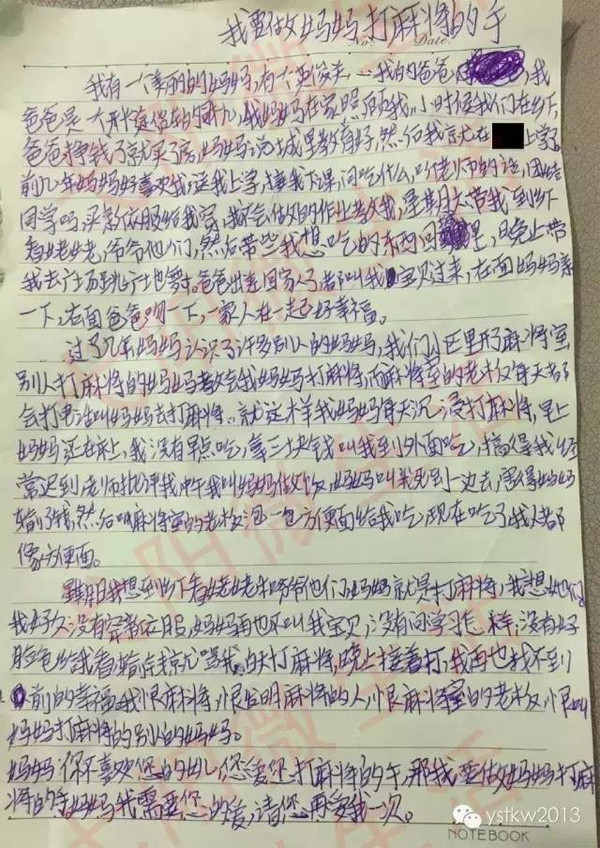 我要做妈妈打麻将的手
No.
Date.
我有一个美丽的妈妈,有个英俊的我的爸爸,我
爸爸是一个开货车的司机,我妈妈在家照顾我。小时候我们在乡下,
爸爸挣钱了就买了房,妈妈说城里教育好,然后我就在上学。
前几年妈妈好喜欢我,送我上学,接我下课,问吃什么,听老师的话,团结
同学吗,买新衣服给我穿,我不会做的作业教我,星期天带我到乡下
看姥姥,爷爷他们,然后带些我想吃的东西回里,晚上带
我去广场跳广场舞。爸爸出差回家了,都叫我宝贝过来,左面妈妈亲
一下,右面爸爸吻一下,一家人在一起好幸福。
过了几年妈妈认识了许多别人的妈妈,我们小区里开了麻将室,
别人打麻将的妈妈教会我妈妈打麻将,而麻将室的老板每天都
会打电话叫妈妈去打麻将。就这样我妈妈每天沉浸打麻将,早上
妈妈还在床上,我没有早点吃,拿三块钱叫我到外面吃,搞得我经
常迟到,老师批评我,中午我叫妈妈做饭,妈妈叫我死到一边去,害得妈妈
输了钱,然后叫麻将室的老板泡一包方便面给我吃,现在吃了我人都
像方便面。
星期我想到乡下看姥姥和爷爷他们,妈妈就是打麻将,我想她们
我好久没有穿新衣服,妈妈再也不叫我宝贝,没有问学习怎样,没有好
脸色给我看,输点钱就骂我。白天打麻将,晚上接着打,我再也找不到
前的幸福,我恨麻将,恨发明麻将的人,恨麻将室的老板,恨叫
妈妈打麻将的别人的妈妈。
妈妈你不喜欢您的女儿,您爱您打麻将的手,那我要做妈妈打麻
将的手,妈妈我需要您的爱,请您再爱我一次。
ystkw2013
NOTEBOOK